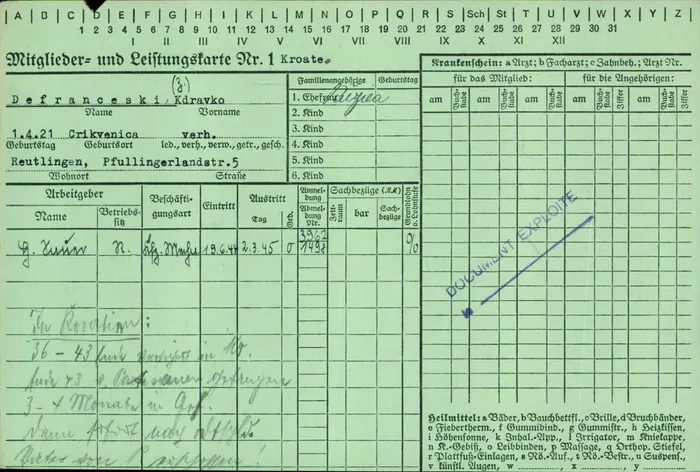 A B C D E F G H I K L M N O P Q R S Sch St T U V W X Y Z
1 2 3 4 5 6 7 8 9 10 11 12 13 14 15 16 17 18 19 20 21 22 23 24 25 26 27 28 29 30 31
I II III IV V VI VII VIII IX X XI XII
Mitglieder- und Leistungskarte Nr. 1 Kroate.
(z.)
Defranceski, Kdravko
Name Vorname
1.4.21 Crikvenica verh.
Geburtstag Geburtsort led., verh., verw., getr., gesch.
Reutlingen, Pfullingerlandstr.5
Wohnort Straße
Familienangehörige Geburtstag
1. Ehefrau
2. Kind
3. Kind
4. Kind
5. Kind
6. Kind
Krankenschein: a Arzt; b Facharzt; c Zahnbeh.; Arzt Nr.
für das Mitglied: für die Angehörigen:
am Buchstabe am Buchstabe am Buchstabe am Buchstabe am Buchstabe Ziffer am Buchstabe Ziffer
Arbeitgeber Beschäftigungsart Eintritt Austritt Anmeldung Abmeldung Nr. Sachbezüge (RM) Grundlohn o. Lohnstufe
Name Betriebssitz Tag Grd. Zeitraum bar Sachbezüge
G. R. 19.6.44 2.3.45 3962
1498 %
DOCUMENT EXPLOITE
In Kroatien:
36 - 43 in
Ende 43 v. gefangen
3 - 4 Monate in Gef.
Dann sofort nach
Vater von P. erschossen!
Heilmittel: a Bäder, b Bauchbettfl., c Brille, d Bruchbänder,
e Fiebertherm., f Gummibind., g Gummistr., h Heizkissen,
i Höhensonne, k Inhal.-App., l Irrigator, m Kniekappe,
n K.-Gebiß, o Leibbinden, p Massage, q Orthop. Stiefel,
r Plattfuß-Einlagen, s Rö.-Auf., t Rö.-Bestr., u Suspens.,
v künstl. Augen, w x y